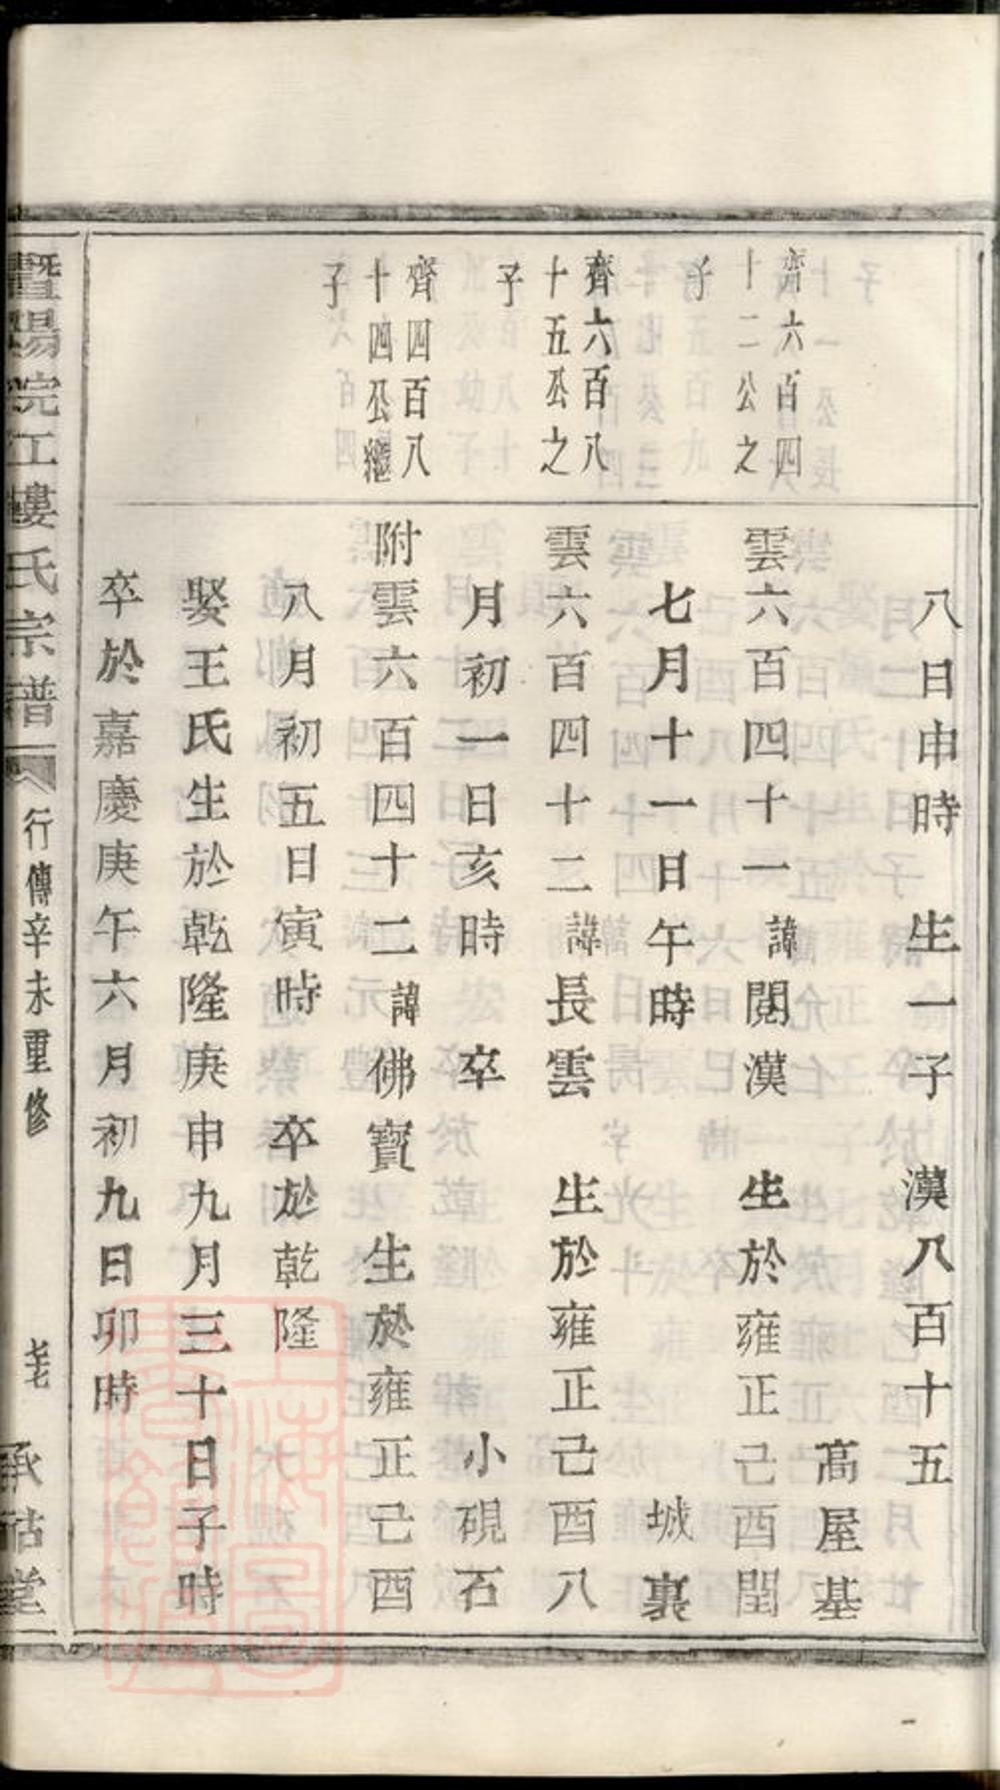 八日申時　生一子　漢八百十五
高屋基
齊六百四
十二公之
子
雲六百四十一　諱閱漢　生於雍正己酉閏
七月十一日午時　城裏
齊六百八
十五公之
子
雲六百四十二　諱長雲　生於雍正己酉八
月初一日亥時　卒　小硯石
齊四百八
十四公繼
子
附雲六百四十二　諱佛寶　生於雍正己酉
八月初五日寅時　卒於乾隆
娶王氏生於乾隆庚申九月三十日子時
卒於嘉慶庚午六月初九日卯時
暨陽院江婁氏宗譜　行傳辛未重修　承祜堂
上海圖書館藏